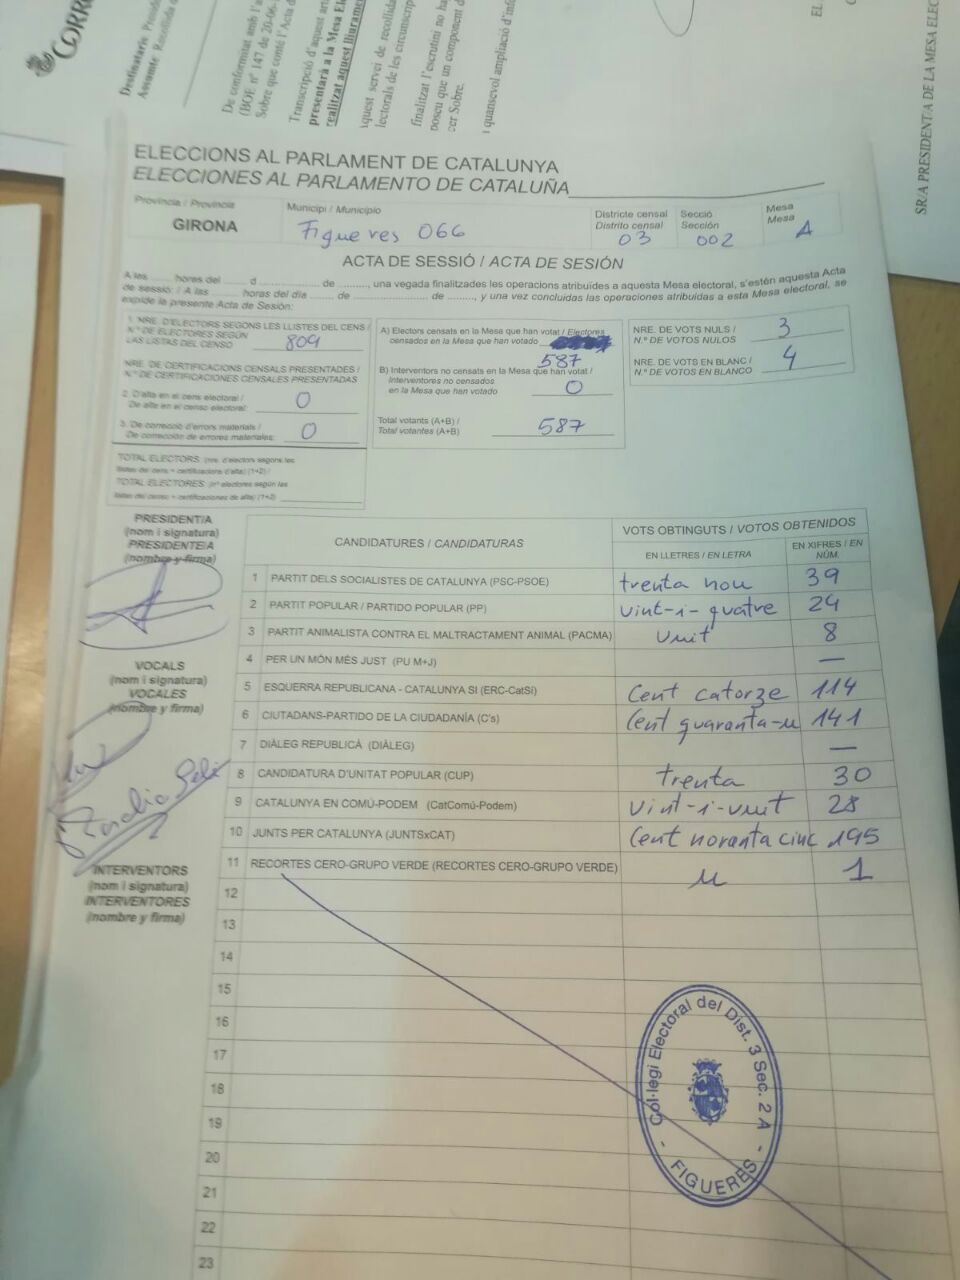 CORR
Destinataris
De conformitat amb l'a
(BOE nº 147 de 20-06-
Sobre que conté l'Acta d
Transcripció d'aquest art
presentarà a la Mesa Ele
realitzat aquest lliuramen
lectorals de les circumscrip
finalitzat l'escrutini no ha
poseu que un component d
cer Sobre.
quansevol ampliació d'inf
EL
SR/A PRESIDENT/A DE LA MESA ELEC
ELECCIONS AL PARLAMENT DE CATALUNYA
ELECCIONES AL PARLAMENTO DE CATALUÑA
Província / Provincia
GIRONA
Municipi / Municipio
Figueres 066
Districte censal
Distrito censal
03
Secció
Sección
002
Mesa
Mesa
A
ACTA DE SESSIÓ / ACTA DE SESIÓN
A les ...... hores del ...... d ...... de ........, una vegada finalitzades les operacions atribuïdes a aquesta Mesa electoral, s'estén aquesta Acta
de sessió: / A las ...... horas del día ...... de ........ de ........, y una vez concluidas las operaciones atribuidas a esta Mesa electoral, se
expide la presente Acta de Sesión:
1. NRE. D'ELECTORS SEGONS LES LLISTES DEL CENS /
N.º DE ELECTORES SEGÚN
LAS LISTAS DEL CENSO
809
NRE. DE CERTIFICACIONS CENSALS PRESENTADES /
N.º DE CERTIFICACIONES CENSALES PRESENTADAS
2. D'alta en el cens electoral /
De alta en el censo electoral:
0
3. De correcció d'errors materials /
De corrección de errores materiales:
0
TOTAL ELECTORS (nre. d'electors segons les
llistes del cens + certificacions d'alta) (1+2) /
TOTAL ELECTORES (nº electores según las
listas del censo + certificaciones de alta) (1+2)
A) Electors censats en la Mesa que han votat / Electores
censados en la Mesa que han votado
587
B) Interventors no censats en la Mesa que han votat /
Interventores no censados
en la Mesa que han votado
0
Total votants (A+B) /
Total votantes (A+B)
587
NRE. DE VOTS NULS /
N.º DE VOTOS NULOS
3
NRE. DE VOTS EN BLANC /
N.º DE VOTOS EN BLANCO
4
PRESIDENT/A
(nom i signatura)
PRESIDENTE/A
(nombre y firma)
VOCALS
(nom i signatura)
VOCALES
(nombre y firma)
INTERVENTORS
(nom i signatura)
INTERVENTORES
(nombre y firma)
CANDIDATURES / CANDIDATURAS
VOTS OBTINGUTS / VOTOS OBTENIDOS
EN LLETRES / EN LETRA
EN XIFRES / EN NÚM.
1 PARTIT DELS SOCIALISTES DE CATALUNYA (PSC-PSOE) trenta nou 39
2 PARTIT POPULAR / PARTIDO POPULAR (PP) vint-i-quatre 24
3 PARTIT ANIMALISTA CONTRA EL MALTRACTAMENT ANIMAL (PACMA) vuit 8
4 PER UN MÓN MÉS JUST (PU M+J) —
5 ESQUERRA REPUBLICANA - CATALUNYA SI (ERC-CatSí) Cent catorze 114
6 CIUTADANS-PARTIDO DE LA CIUDADANÍA (C's) Cent quaranta-u 141
7 DIÀLEG REPUBLICÀ (DIÀLEG) —
8 CANDIDATURA D'UNITAT POPULAR (CUP) trenta 30
9 CATALUNYA EN COMÚ-PODEM (CatComú-Podem) vint-i-vuit 28
10 JUNTS PER CATALUNYA (JUNTSxCAT) Cent noranta cinc 195
11 RECORTES CERO-GRUPO VERDE (RECORTES CERO-GRUPO VERDE) u 1
12
13
14
15
16
17
18
19
20
21
22
23
Col·legi Electoral del Dist. 3 Sec. 2 A
- FIGUERES -